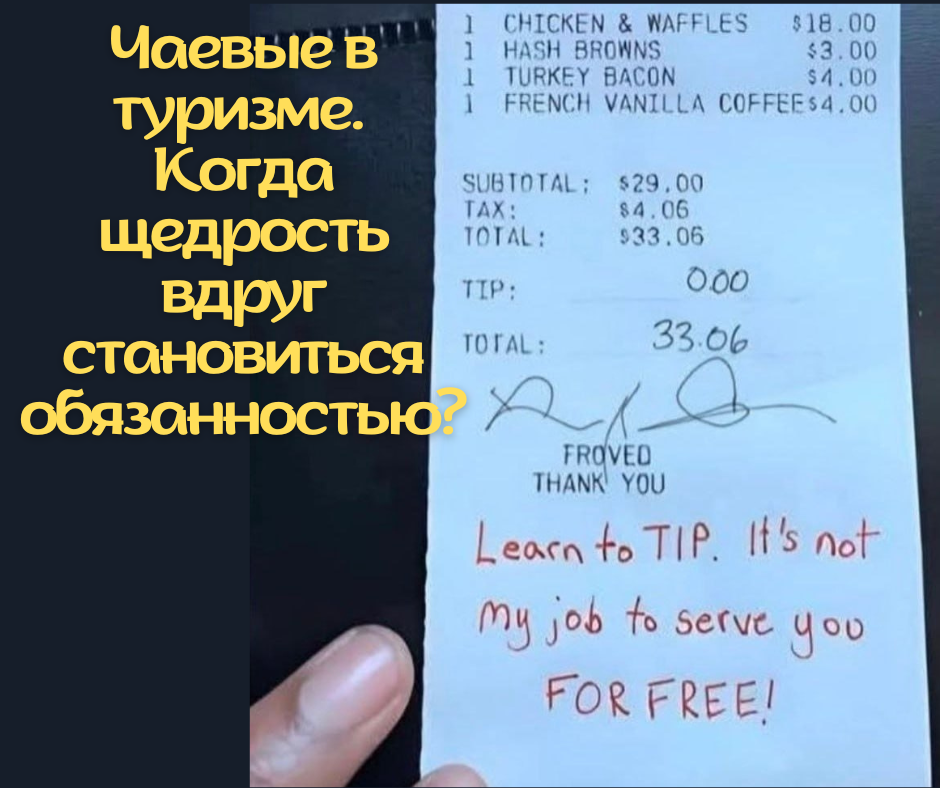 Чаевые в
туризме.
Когда
щедрость
вдруг
становиться
обязанностью?
1 CHICKEN & WAFFLES $18.00
1 HASH BROWNS $3.00
1 TURKEY BACON $4.00
1 FRENCH VANILLA COFFEE $4.00
SUBTOTAL: $29.00
TAX: $4.06
TOTAL: $33.06
TIP: 0.00
TOTAL: 33.06
FROVED
THANK YOU
Learn to TIP. It's not
my job to serve you
FOR FREE!